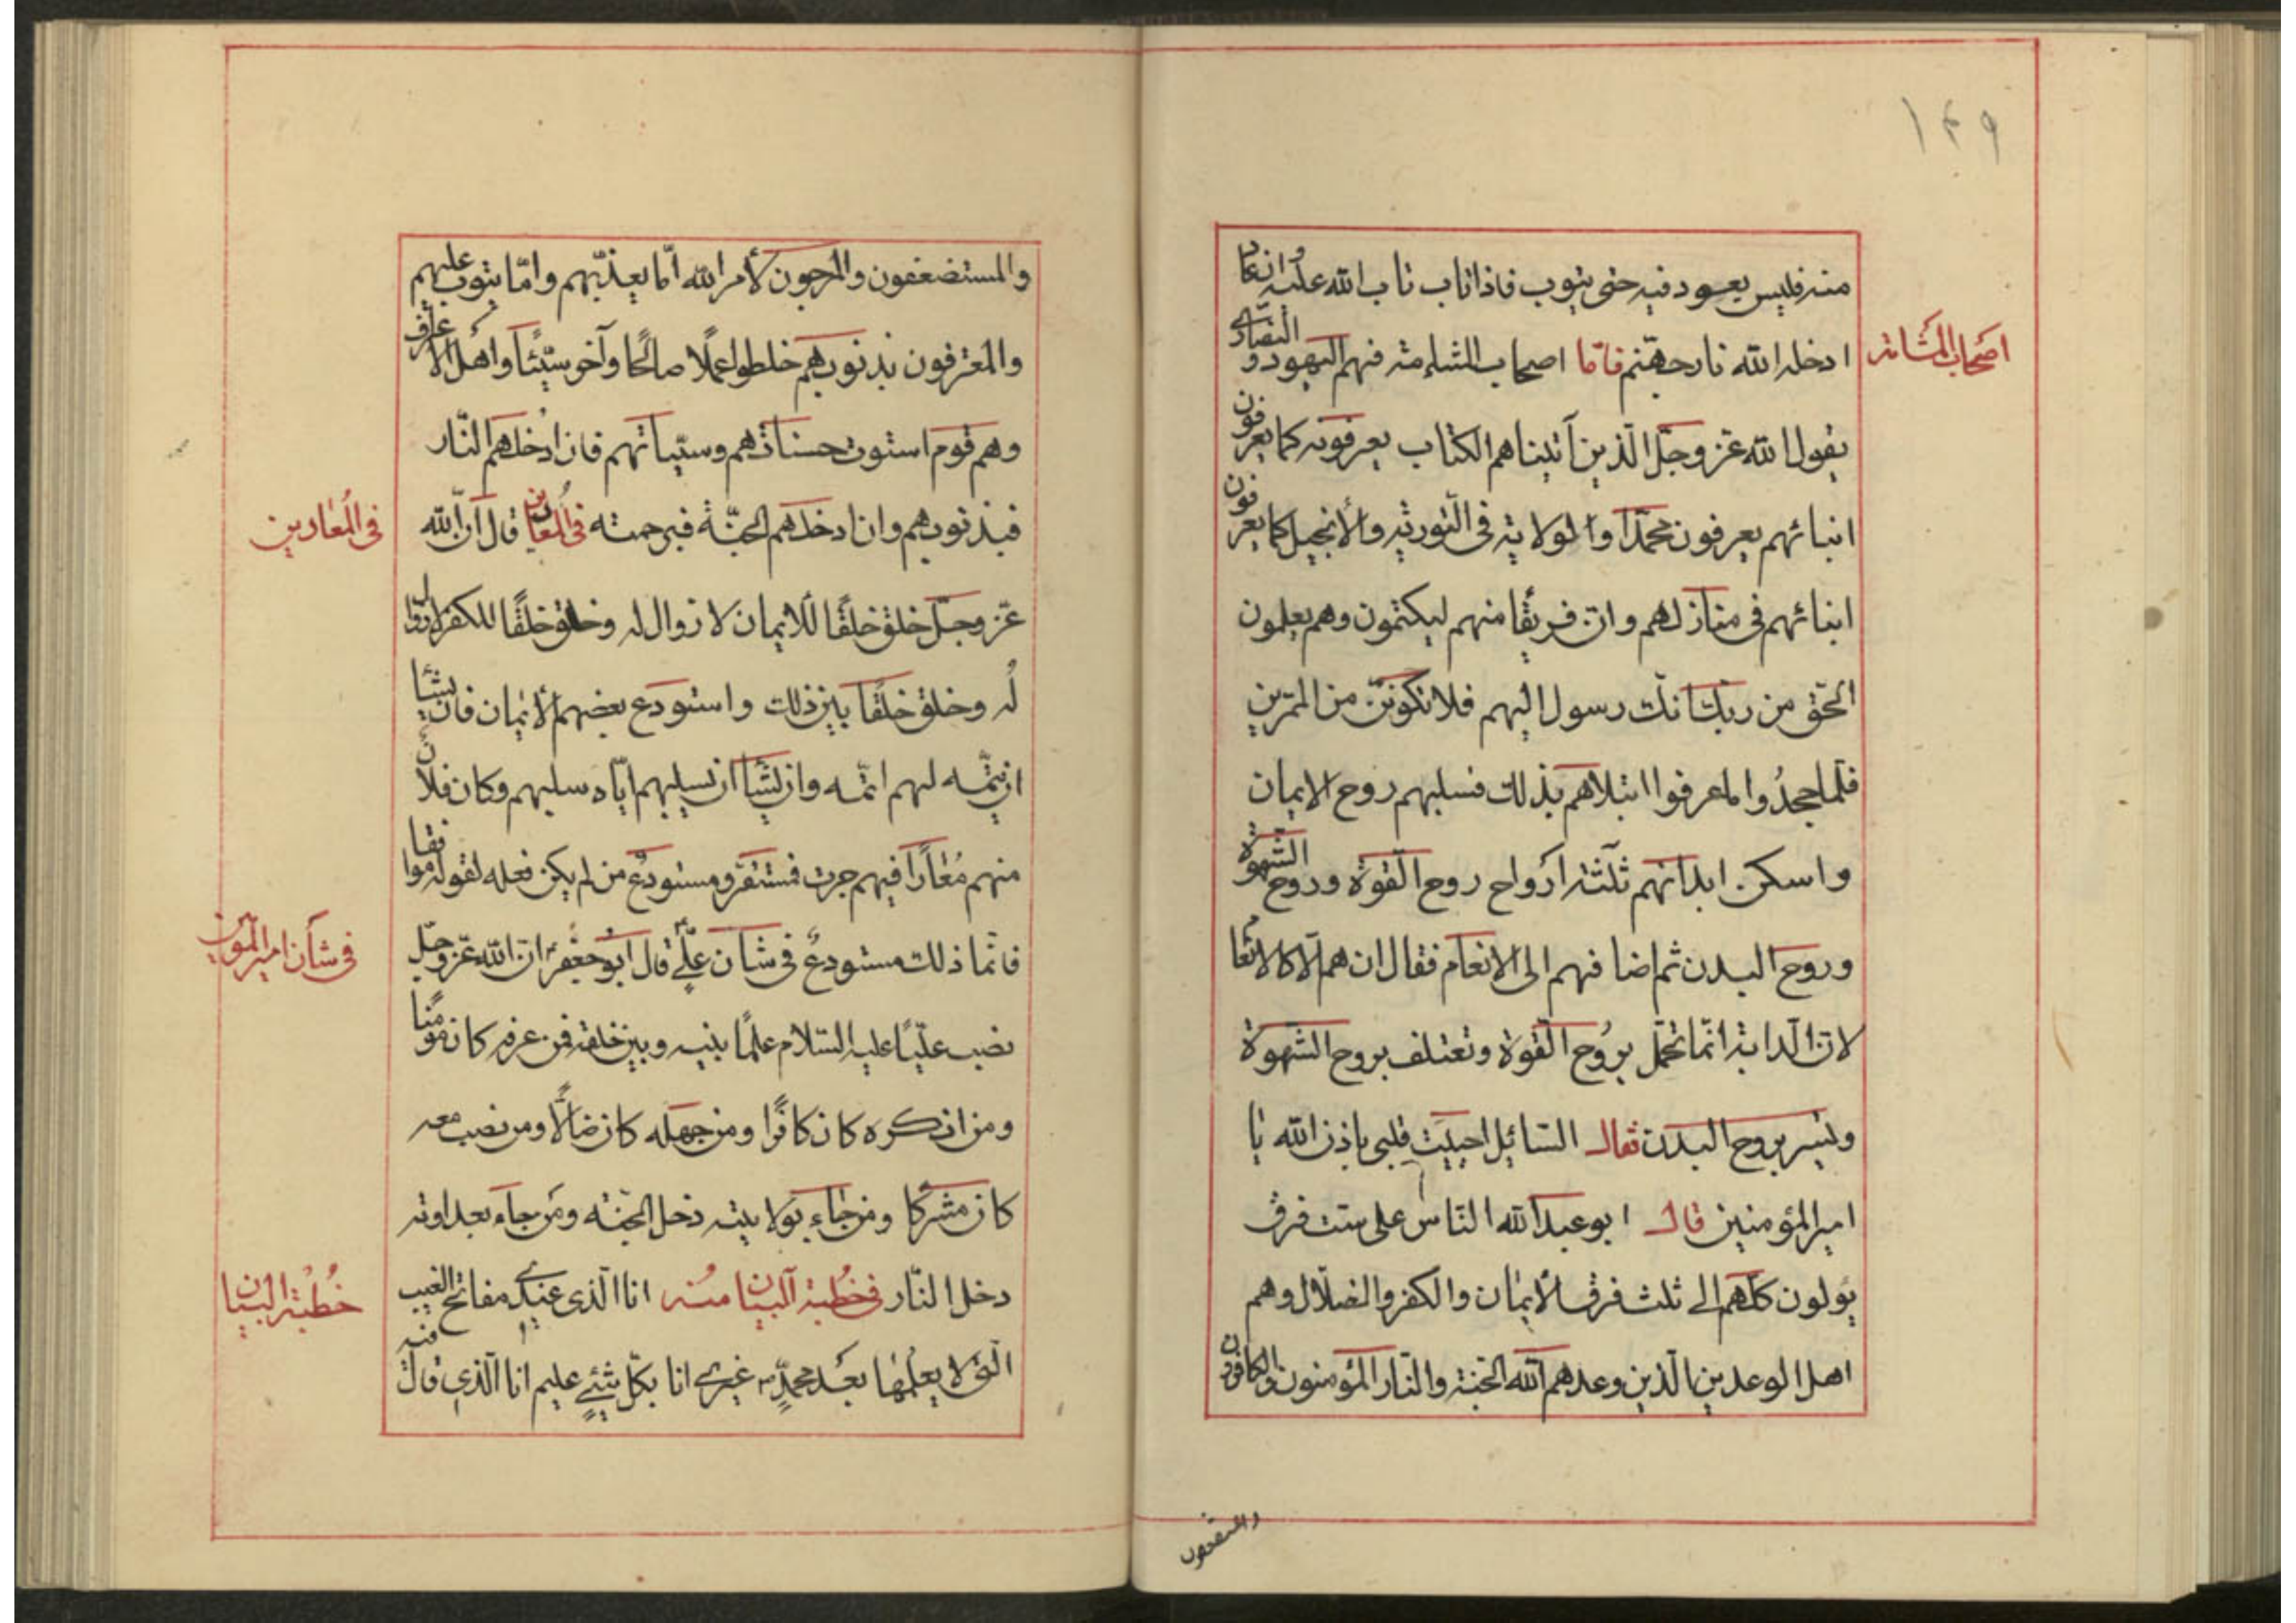 ١٤٩
منه فليس يعود فيه حتى يتوب فاذا تاب تاب الله عليه وان عاد
ادخله الله نار جهنّم فامّا اصحاب المشامة فهم اليهود والنصارى
اصحاب المشامه
يقول الله عزّ وجلّ الّذين آتيناهم الكتاب يعرفونه كما يعرفون
ابنائهم يعرفون محمّدا والولاية فى التّورية والأنجيل كما يعرفون
ابنائهم فى منازلهم وانّ فريقًا منهم ليكتمون وهم يعلمون
الحّق من ربّك انّك رسول اليهم فلا تكوننّ من الممترين
فلمّا جحدُوا ما عرفوا ابتلاهم بذلك فسلبهم روح الايمان
واسكن ابدانهم ثلثة أرواح روح القوة وروح الشّهوة
وروح البدن ثم اضافهم الى الانعام فقال ان هم الّا كالانعام
لانّ الدابة انّما تحمل برُوح القوة وتعتلف بروح الشّهوة
وتسير بروح البدن فقال السّائل احييت قلبى باذن الله يا
امير المؤمنين قال ابو عبد الله النّاس على ستّ فرق
يؤلون كلّهم الى ثلث فرق الأيمان والكفر والضلال وهم
اهل الوعدين الّذين وعدهم الله الجّنة والنّار المؤمنون والكافرون
والمستضعفون
والمستضعفون والمرجون لأمر الله امّا يعذّبهم وامّا يتوب عليهم
والمعترفون بذنوبهم خلطوا عملًا صالحًا وآخر سيّئًا واهل الاعراف
وهم قوم استوت حسناتهم وسيّياتهم فان ادُخلهم النّار
فبذنوبهم وان ادخلهم الجنّة فبرحمته فى المعارين قال انّ الله
فى المعارين
عزّ وجلّ خلق خلقًا للايمان لا زوال له وخلق خلقًا للكفر لا زوال
لُه وخلق خلقًا بين ذلك واستودع بعضهم الأيمان فان يشأ
ان يتمّه لهم اتمّه وان يشأ ان يسلبهم ايّاه سلبهم وكان فلان
منهم مُعارًا فيهم جرت فمستقر ومستودعٌ من لم يكن فعله لقوله موافقا
فانّما ذلك مستودعٌ فى شأن علىّ قال ابو جعفر انّ الله عزّ وجلّ
فى شأن امير المؤمنين
نصب عليًّا عليه السّلام علمًا بينه وبين خلقه فمن عرفه كان مؤمنًا
ومن انكره كان كافرًا ومن جهله كان ضالًّا ومن نصب معه
كان مشركًا ومن جاء بولايته دخل الجنّه ومن جاء بعداوته
دخل النّار فى خُطبة البيان منه انا الّذى عندى مفاتح الغيب
خُطبة البيان
الّتى لا يعلمها بعد محمّدٍ غيرى انا بكلّ شئٍ عليم انا الّذى قال فيه